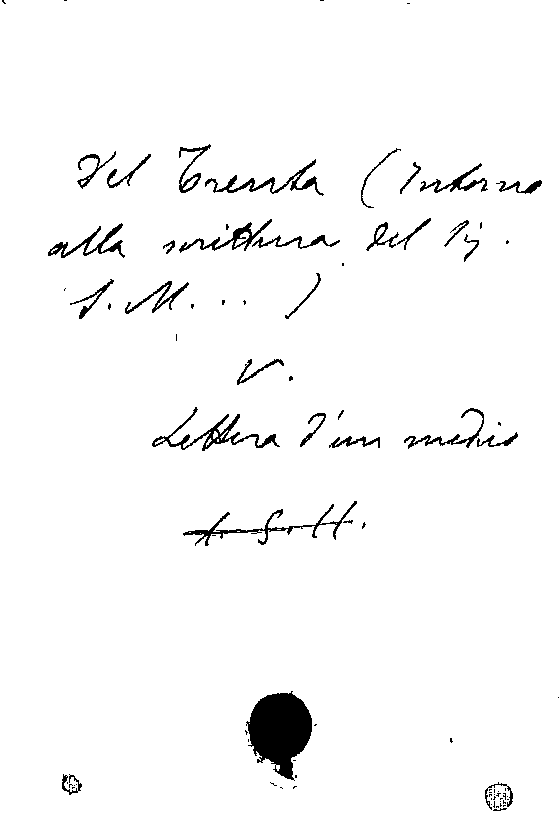 Del Trenta (Intorno
alla scrittura del Sig.
S. M. ... )
V.
Lettera d'un medico
A. G. H.